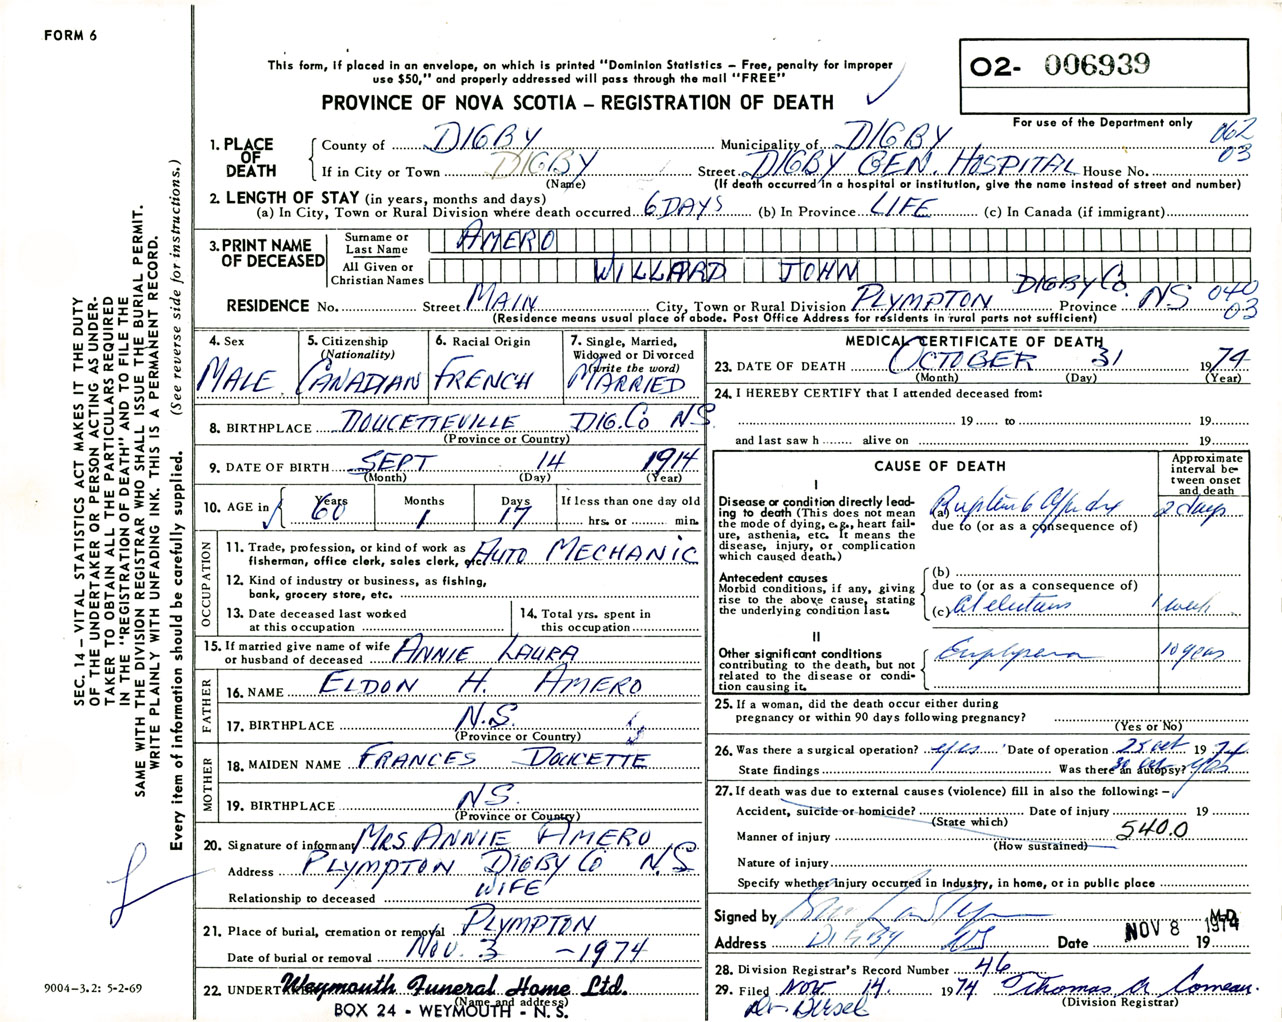 FORM 6
This form, if placed in an envelope, on which is printed "Dominion Statistics – Free, penalty for improper
use $50," and properly addressed will pass through the mail "FREE"
PROVINCE OF NOVA SCOTIA – REGISTRATION OF DEATH
02- 006939
For use of the Department only
062
03
1. PLACE OF DEATH
County of DIGBY Municipality of DIGBY
If in City or Town DIGBY Street DIGBY GEN. HOSPITAL House No.
(Name) (If death occurred in a hospital or institution, give the name instead of street and number)
2. LENGTH OF STAY (in years, months and days)
(a) In City, Town or Rural Division where death occurred 6 DAYS (b) In Province LIFE (c) In Canada (if immigrant)
3. PRINT NAME OF DECEASED
Surname or Last Name AMERO
All Given or Christian Names WILLARD JOHN
RESIDENCE No. Street MAIN City, Town or Rural Division PLYMPTON DIGBY Co. Province NS 040
03
(Residence means usual place of abode. Post Office Address for residents in rural parts not sufficient)
4. Sex
MALE
5. Citizenship
(Nationality)
CANADIAN
6. Racial Origin
FRENCH
7. Single, Married,
Widowed or Divorced
(Write the word)
MARRIED
8. BIRTHPLACE DOUCETTEVILLE DIG. Co N.S.
(Province or Country)
9. DATE OF BIRTH SEPT 14 1914
(Month) (Day) (Year)
10. AGE in Years 60 Months 1 Days 17 If less than one day old
hrs. or min.
OCCUPATION
11. Trade, profession, or kind of work as
fisherman, office clerk, sales clerk, etc. AUTO MECHANIC
12. Kind of industry or business, as fishing,
bank, grocery store, etc.
13. Date deceased last worked
at this occupation
14. Total yrs. spent in
this occupation
15. If married give name of wife
or husband of deceased ANNIE LAURA
FATHER
16. NAME ELDON H. AMERO
17. BIRTHPLACE N.S.
(Province or Country)
MOTHER
18. MAIDEN NAME FRANCES DOUCETTE
19. BIRTHPLACE N.S.
(Province or Country)
20. Signature of informant MRS. ANNIE AMERO
Address PLYMPTON DIGBY Co N.S
Relationship to deceased WIFE
21. Place of burial, cremation or removal PLYMPTON
Date of burial or removal NOV. 3 – 1974
22. UNDERTAKER Weymouth Funeral Home Ltd.
(Name and address)
BOX 24 - WEYMOUTH - N. S.
MEDICAL CERTIFICATE OF DEATH
23. DATE OF DEATH OCTOBER 31 1974
(Month) (Day) (Year)
24. I HEREBY CERTIFY that I attended deceased from:
19 to 19
and last saw h alive on 19
CAUSE OF DEATH
Approximate
interval be-
tween onset
and death
I
Disease or condition directly lead-
ing to death (This does not mean
the mode of dying, e.g., heart fail-
ure, asthenia, etc. It means the
disease, injury, or complication
which caused death.)
(a) 2 days
due to (or as a consequence of)
Antecedent causes
Morbid conditions, if any, giving
rise to the above cause, stating
the underlying condition last.
(b)
due to (or as a consequence of)
(c) Atelectasis 1 week
II
Other significant conditions
contributing to the death, but not
related to the disease or condi-
tion causing it.
Emphysema 10 years
25. If a woman, did the death occur either during
pregnancy or within 90 days following pregnancy?
(Yes or No)
26. Was there a surgical operation? yes Date of operation 25 Oct 1974
State findings Was there an autopsy? yes
27. If death was due to external causes (violence) fill in also the following: –
Accident, suicide or homicide? Date of injury 19
(State which)
Manner of injury 540.0
(How sustained)
Nature of injury
Specify whether injury occurred in Industry, in home, or in public place
Signed by M.D.
Address DIGBY NS Date NOV 8 1974 19
28. Division Registrar's Record Number 46
29. Filed NOV. 14. 1974 Thomas A Comeau.
(Division Registrar)
SEC. 14 – VITAL STATISTICS ACT MAKES IT THE DUTY
OF THE UNDERTAKER OR PERSON ACTING AS UNDER-
TAKER TO OBTAIN ALL THE PARTICULARS REQUIRED
IN THE "REGISTRATION OF DEATH" AND TO FILE THE
SAME WITH THE DIVISION REGISTRAR WHO SHALL ISSUE THE BURIAL PERMIT.
WRITE PLAINLY WITH UNFADING INK. THIS IS A PERMANENT RECORD.
Every item of information should be carefully supplied. (See reverse side for instructions.)
9004-3.2: 5-2-69